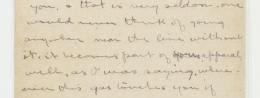 you, & that is very seldom. one
would never think of young
near the line without
it. it becomes part of your apparel
well, as I was saying, when-
ever this gas touches you if